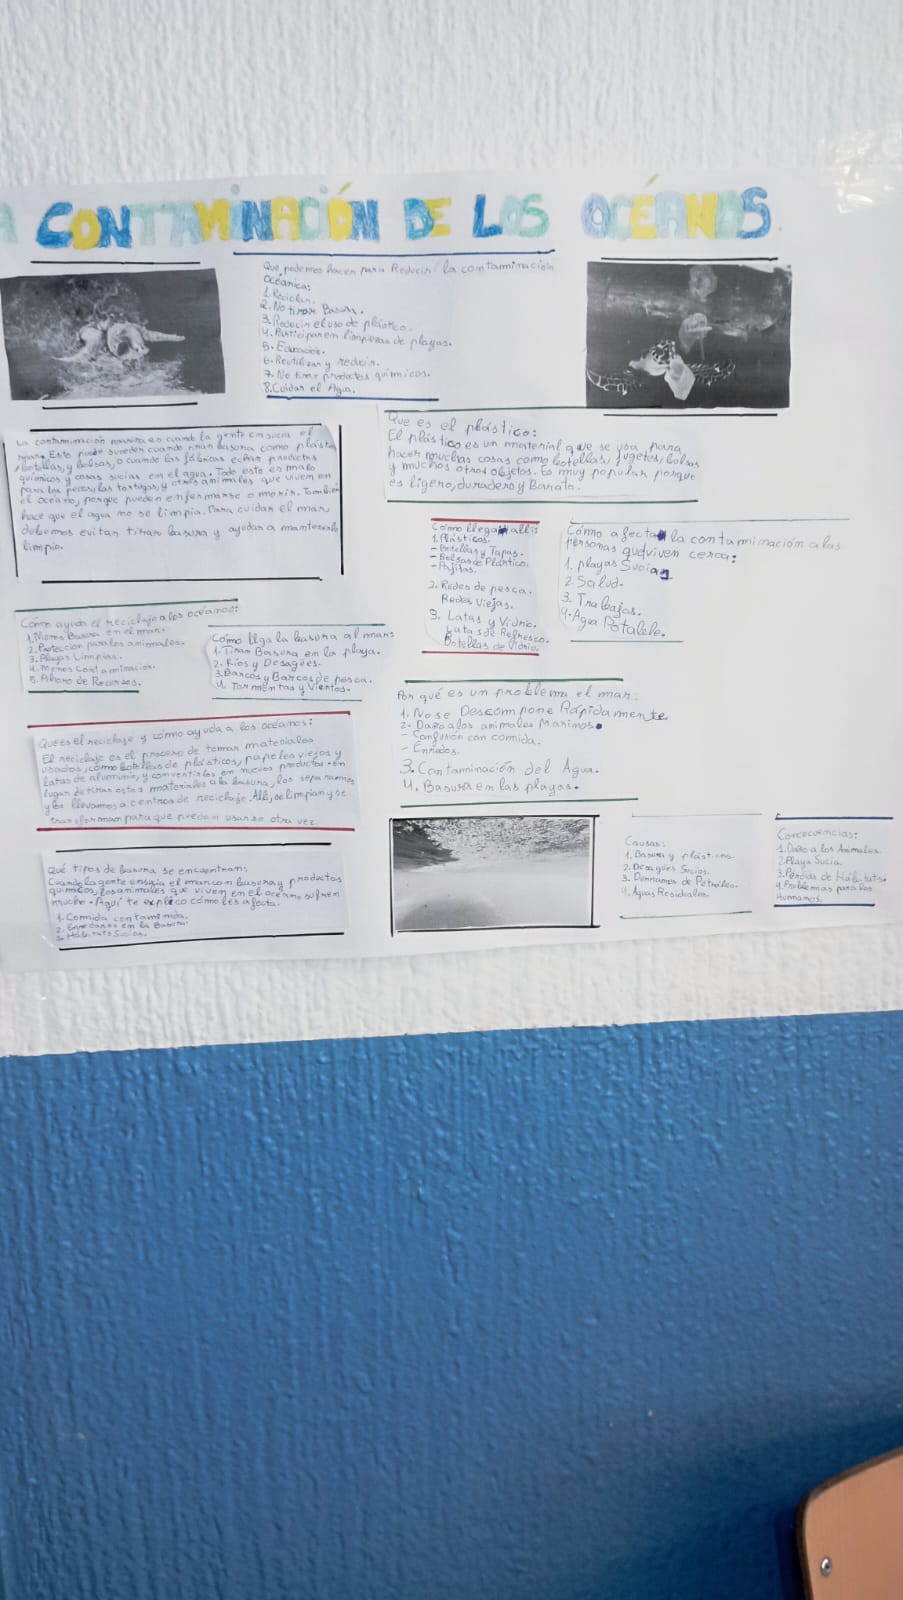 A CONTAMINACIÓN DE LOS OCÉANOS
Que podemos hacer para Reducir la contaminación
Oceánica:
1. Reciclar.
2. No tirar Basura.
3. Reducir el uso de plástico.
4. Participar em limpiezas de playas.
5. Educación.
6. Reutilizar y reducir.
7. No tirar productos químicos.
8. Cuidar el Agua.
La contaminación marina es cuando la gente ensucia el
mar. Esto puede suceder cuando tiran basura como plásti
botellas, y bolsas, o cuando las fábricas echan productos
químicos y cosas sucias en el agua. Todo esto es malo
para los peces, las tortugas, y otros animales que viven en
el océano, porque pueden enfermarse o morir. También
hace que el agua no se limpia. Para cuidar el mar
debemos evitar tirar basura y ayudar a mantenerlo
limpio.
Que es el plástico:
El plástico es un material que se usa para
hacer muchas cosas como botellas, jugetes, bolsas
y muchos otros objetos. Es muy popular porque
es ligero, duradero y Barato.
Cómo llega allí:
1. Plásticos.
- Botellas y Tapas.
- Bolsas de Plástico.
- Pajitas.
2. Redes de pesca.
Redes Viejas.
3. Latas y Vidrio.
Latas de Refresco.
Botellas de Vidrio.
Cómo afecta la contaminación a las
personas que viven cerca:
1. playas Sucias
2. Salud.
3. Trabajos.
4. Agua Potable.
Cómo ayuda el reciclaje a los océanos:
1. Menos Basura en el mar.
2. Protección para los animales.
3. Playas Limpias.
4. Menos Contaminación.
5. Ahorro de Recursos.
Cómo llga la basura al mar:
1. Tirar Basura en la playa.
2. Ríos y Desagües.
3. Barcos y Barcos de pesca.
4. Tormentas y Vientos.
Por qué es un problema el mar:
1. No se Descompone Rápidamente
2. Daño a los animales Marinos.
- Confusión con comida.
- Enredos.
3. Contaminación del Agua.
4. Basura en las playas.
Que es el reciclaje y cómo ayuda a los océanos:
El reciclaje es el proceso de tomar materiales
usados, como botellas de plásticos, papeles viejos y
latas de aluminio, y convertirlos en nuevos productos. En
lugar de tirar estos materiales a la basura, los separamos
y los llevamos a centros de reciclaje. Allí, se limpian y se
transforman para que puedan usarse otra vez.
Qué tipos de basura se encuentran:
Cuando la gente ensucia el mar con basura y productos
químicos, los animales que viven en el océano sufren
mucho. Aquí te explico cómo les afecta.
1. Comida contaminda.
2. Enredarse en la Basura.
3. Hábitats Sucios.
Causas:
1. Basura y plásticos.
2. Desagües Sucios.
3. Derrames de Petróleo.
4. Aguas Residuales.
Concecuencias:
1. Daño a los Animales.
2. Playa Sucia.
3. Pérdida de Hábitats.
4. Problemas para los
Humanos.